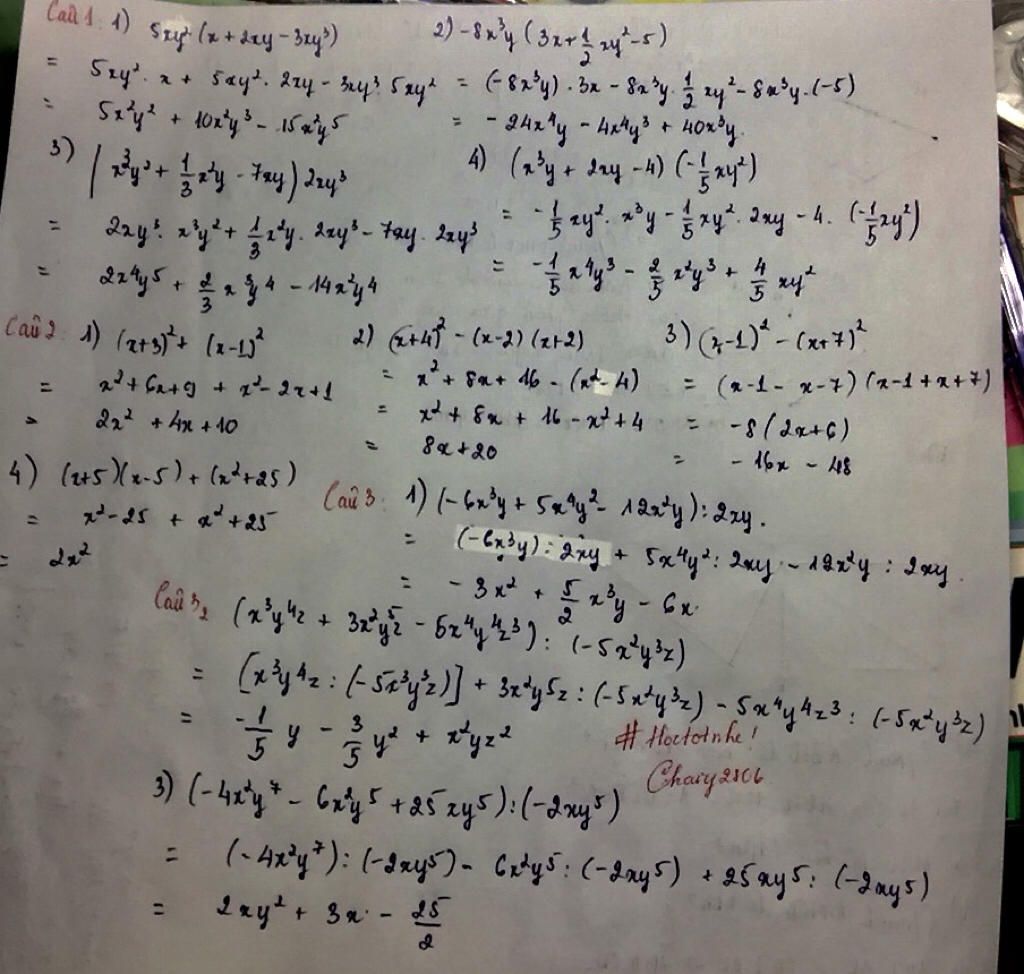 Câu 1: 1) 5xy² (x + 2xy - 3xy³)
= 5xy² . x + 5xy² . 2xy - 3xy³ . 5xy²
= 5x²y² + 10x²y³ - 15x²y⁵
2) -8x³y (3x + 1/2 xy² - 5)
= (-8x³y) . 3x - 8x³y . 1/2 xy² - 8x³y . (-5)
= -24x⁴y - 4x⁴y³ + 40x³y.
3) (x³y² + 1/3 x²y - 7xy) 2xy³
= 2xy³ . x³y² + 1/3 x²y . 2xy³ - 7xy . 2xy³
= 2x⁴y⁵ + 2/3 x³y⁴ - 14x²y⁴
4) (x³y + 2xy - 4) (-1/5 xy²)
= -1/5 xy² . x³y - 1/5 xy² . 2xy - 4 . (-1/5 xy²)
= -1/5 x⁴y³ - 2/5 x²y³ + 4/5 xy²
Câu 2: 1) (x+3)² + (x-1)²
= x² + 6x + 9 + x² - 2x + 1
= 2x² + 4x + 10
2) (x+4)² - (x-2) (x+2)
= x² + 8x + 16 - (x² - 4)
= x² + 8x + 16 - x² + 4
= 8x + 20
3) (x-1)² - (x+7)²
= (x-1 - x-7) (x-1 + x+7)
= -8 (2x+6)
= -16x - 48
4) (x+5)(x-5) + (x²+25)
= x² - 25 + x² + 25
= 2x²
Câu 3: 1) (-6x³y + 5x⁴y² - 12x²y) : 2xy.
= (-6x³y) : 2xy + 5x⁴y² : 2xy - 12x²y : 2xy.
= -3x² + 5/2 x³y - 6x.
Câu 3, 2 (x³y⁴z + 3x²y⁵z - 5x⁴y⁴z³) : (-5x²y³z)
= [x³y⁴z : (-5x³y³z)] + 3x²y⁵z : (-5x²y³z) - 5x⁴y⁴z³ : (-5x²y³z)
= -1/5 y - 3/5 y² + x²yz²
# Hoctotnhe!
Chaiy2806
3) (-4x²y⁷ - 6x²y⁵ + 25xy⁵) : (-2xy⁵)
= (-4x²y⁷) : (-2xy⁵) - 6x²y⁵ : (-2xy⁵) + 25xy⁵ : (-2xy⁵)
= 2xy² + 3x - 25/2